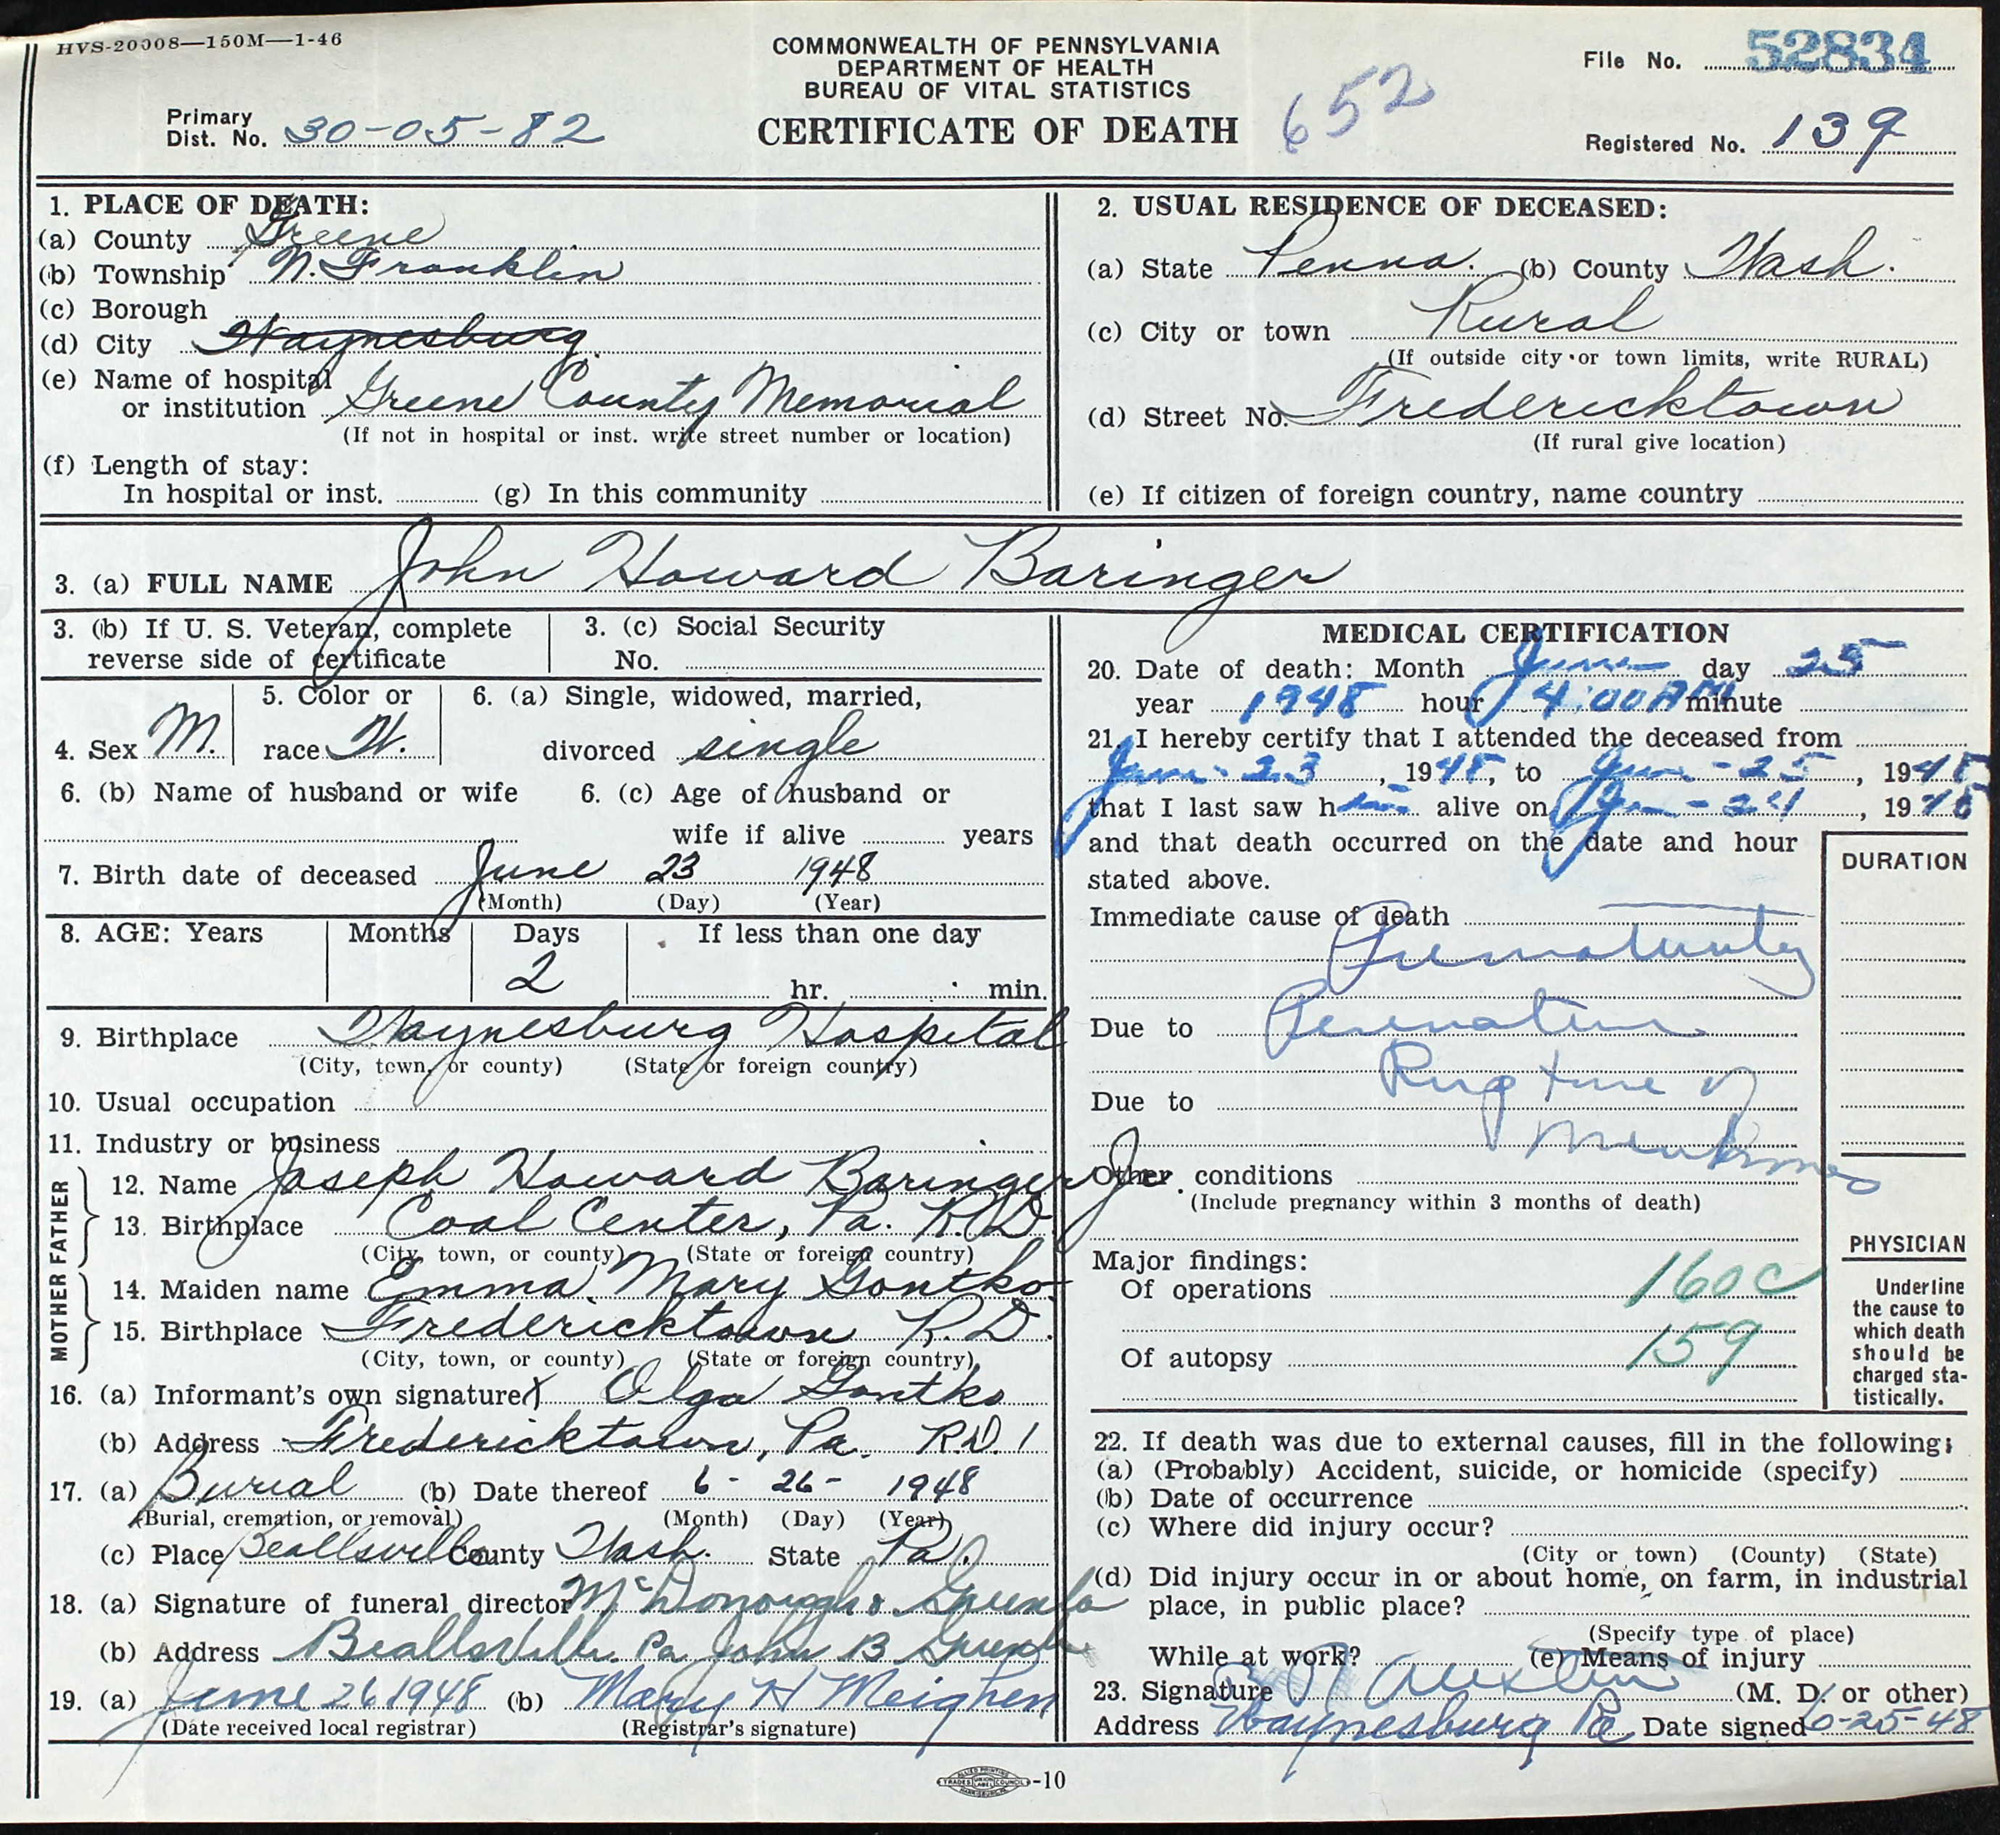 HVS-20008—150M—1-46
COMMONWEALTH OF PENNSYLVANIA
DEPARTMENT OF HEALTH
BUREAU OF VITAL STATISTICS
CERTIFICATE OF DEATH
652
File No. 52834
Primary
Dist. No. 30-05-82
Registered No. 139
1. PLACE OF DEATH:
(a) County Greene
(b) Township N. Franklin
(c) Borough
(d) City Waynesburg.
(e) Name of hospital
or institution Greene County Memorial
(If not in hospital or inst. write street number or location)
(f) Length of stay:
In hospital or inst. (g) In this community
2. USUAL RESIDENCE OF DECEASED:
(a) State Penna. (b) County Wash.
(c) City or town Rural
(If outside city or town limits, write RURAL)
(d) Street No. Fredericktown
(If rural give location)
(e) If citizen of foreign country, name country
3. (a) FULL NAME John Howard Baringer
3. (b) If U. S. Veteran, complete
reverse side of certificate
3. (c) Social Security
No.
4. Sex M.
5. Color or
race W.
6. (a) Single, widowed, married,
divorced single
6. (b) Name of husband or wife
6. (c) Age of husband or
wife if alive years
7. Birth date of deceased June 23 1948
(Month) (Day) (Year)
8. AGE: Years Months Days If less than one day
2 hr. min.
9. Birthplace Waynesburg Hospital
(City, town, or county) (State or foreign country)
10. Usual occupation
11. Industry or business
FATHER
12. Name Joseph Howard Baringer Jr.
13. Birthplace Coal Center, Pa. R.D.
(City, town, or county) (State or foreign country)
MOTHER
14. Maiden name Emma Mary Gontko.
15. Birthplace Fredericktown R.D.
(City, town, or county) (State or foreign country)
16. (a) Informant's own signature X Olga Gontko
(b) Address Fredericktown, Pa. R.D. 1
17. (a) Burial (b) Date thereof 6- 26- 1948
(Burial, cremation, or removal) (Month) (Day) (Year)
(c) Place Beallsville County Wash. State Pa.
18. (a) Signature of funeral director McDonough &
(b) Address Beallsville Pa John B
19. (a) June 26 1948 (b) Mary H Meighen
(Date received local registrar) (Registrar's signature)
MEDICAL CERTIFICATION
20. Date of death: Month June day 25
year 1948 hour 4:00 AM minute
21. I hereby certify that I attended the deceased from
June - 23, 1948, to June - 25, 1948
that I last saw him alive on June - 24, 1948
and that death occurred on the date and hour
stated above.
DURATION
Immediate cause of death
Prematurity
Due to Premature
Rupture of
Due to
Membranes
Other conditions
(Include pregnancy within 3 months of death)
Major findings:
Of operations 160c
Of autopsy 159
PHYSICIAN
Underline
the cause to
which death
should be
charged sta-
tistically.
22. If death was due to external causes, fill in the following:
(a) (Probably) Accident, suicide, or homicide (specify)
(b) Date of occurrence
(c) Where did injury occur?
(City or town) (County) (State)
(d) Did injury occur in or about home, on farm, in industrial
place, in public place?
(Specify type of place)
While at work? (e) Means of injury
23. Signature Austin (M. D. or other)
Address Waynesburg Pa Date signed 6-25-48
ALLIED PRINTING
TRADES UNION LABEL COUNCIL
-10